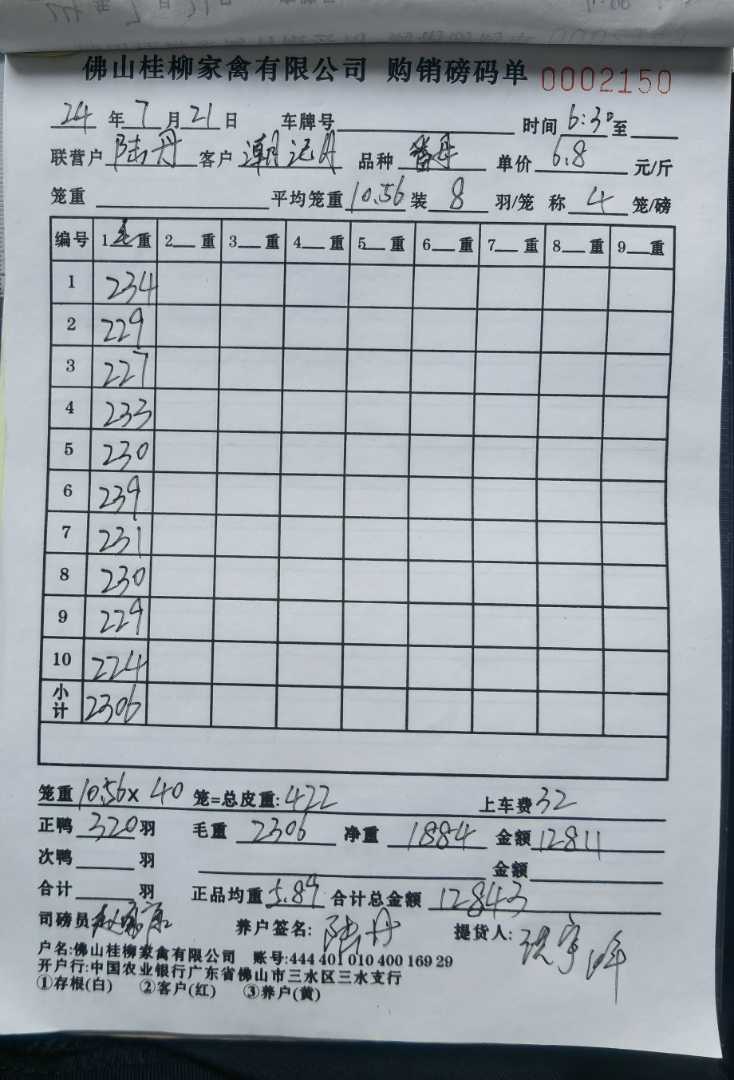 佛山桂柳家禽有限公司 购销磅码单 0002150
24 年 7 月 21 日 车牌号 时间 6:30 至
联营户 陆丹 客户 潮记 品种 单价 6.8 元/斤
笼重 平均笼重 10.56 装 8 羽/笼 称 4 笼/磅
编号 1 毛 重 2 重 3 重 4 重 5 重 6 重 7 重 8 重 9 重
1 234
2 229
3 227
4 233
5 230
6 239
7 231
8 230
9 229
10 224
小计 2306
笼重 10.56 x 40 笼=总皮重: 422 上车费 32
正鸭 320 羽 毛重 2306 净重 1884 金额 12811
次鸭 羽 金额
合计 羽 正品均重 5.89 合计总金额 12843
司磅员 养户签名: 陆丹 提货人:
户名:佛山桂柳家禽有限公司 账号:444 401 010 400 169 29
开户行:中国农业银行广东省佛山市三水区三水支行
①存根(白) ②客户(红) ③养户(黄)